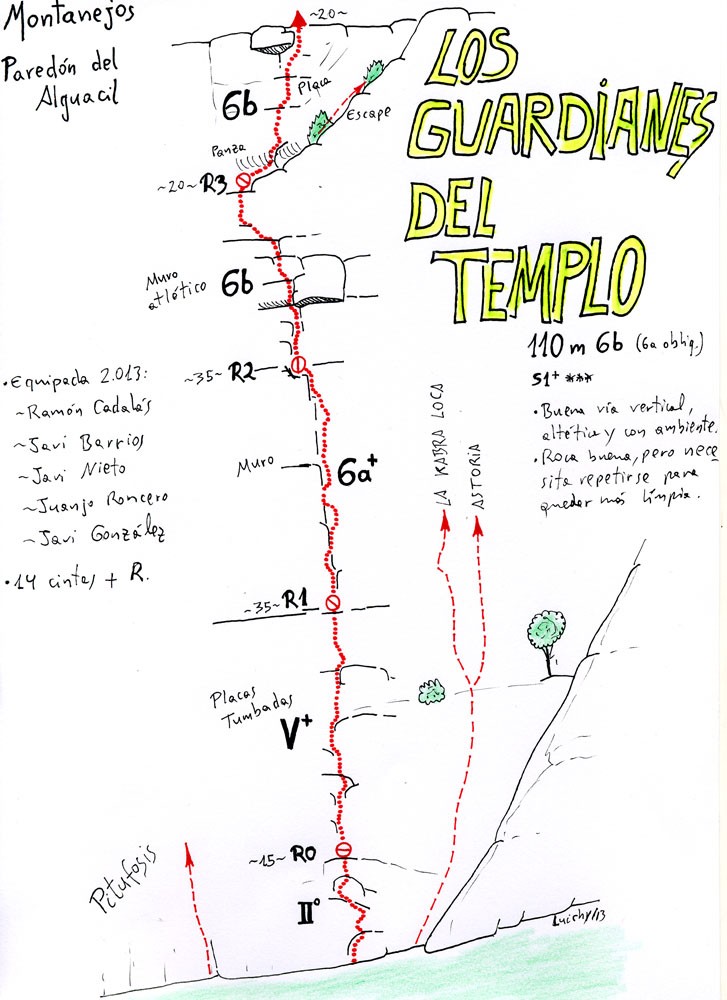 Montanejos
Paredón del
Alguacil
LOS
GUARDIANES
DEL
TEMPLO
110 m 6b (6a oblig.)
S1+ ***
• Buena vía vertical,
altética y con ambiente.
• Roca buena, pero nece
sita repetirse para
quedar más limpia.
~20~
Placa
6b
Escape
Panza
~20~ R3
Muro
atlético
6b
~35~ R2
• Equipada 2.013:
~ Ramón Cadalás
~ Javi Barrios
~ Javi Nieto
~ Juanjo Roncero
~ Javi González
• 14 cintas + R.
Muro
6a+
LA KABRA LOCA
ASTORIA
~35~ R1
Placas
Tumbadas
V+
~15~ R0
IIº
Pitufosis
Luichy/13